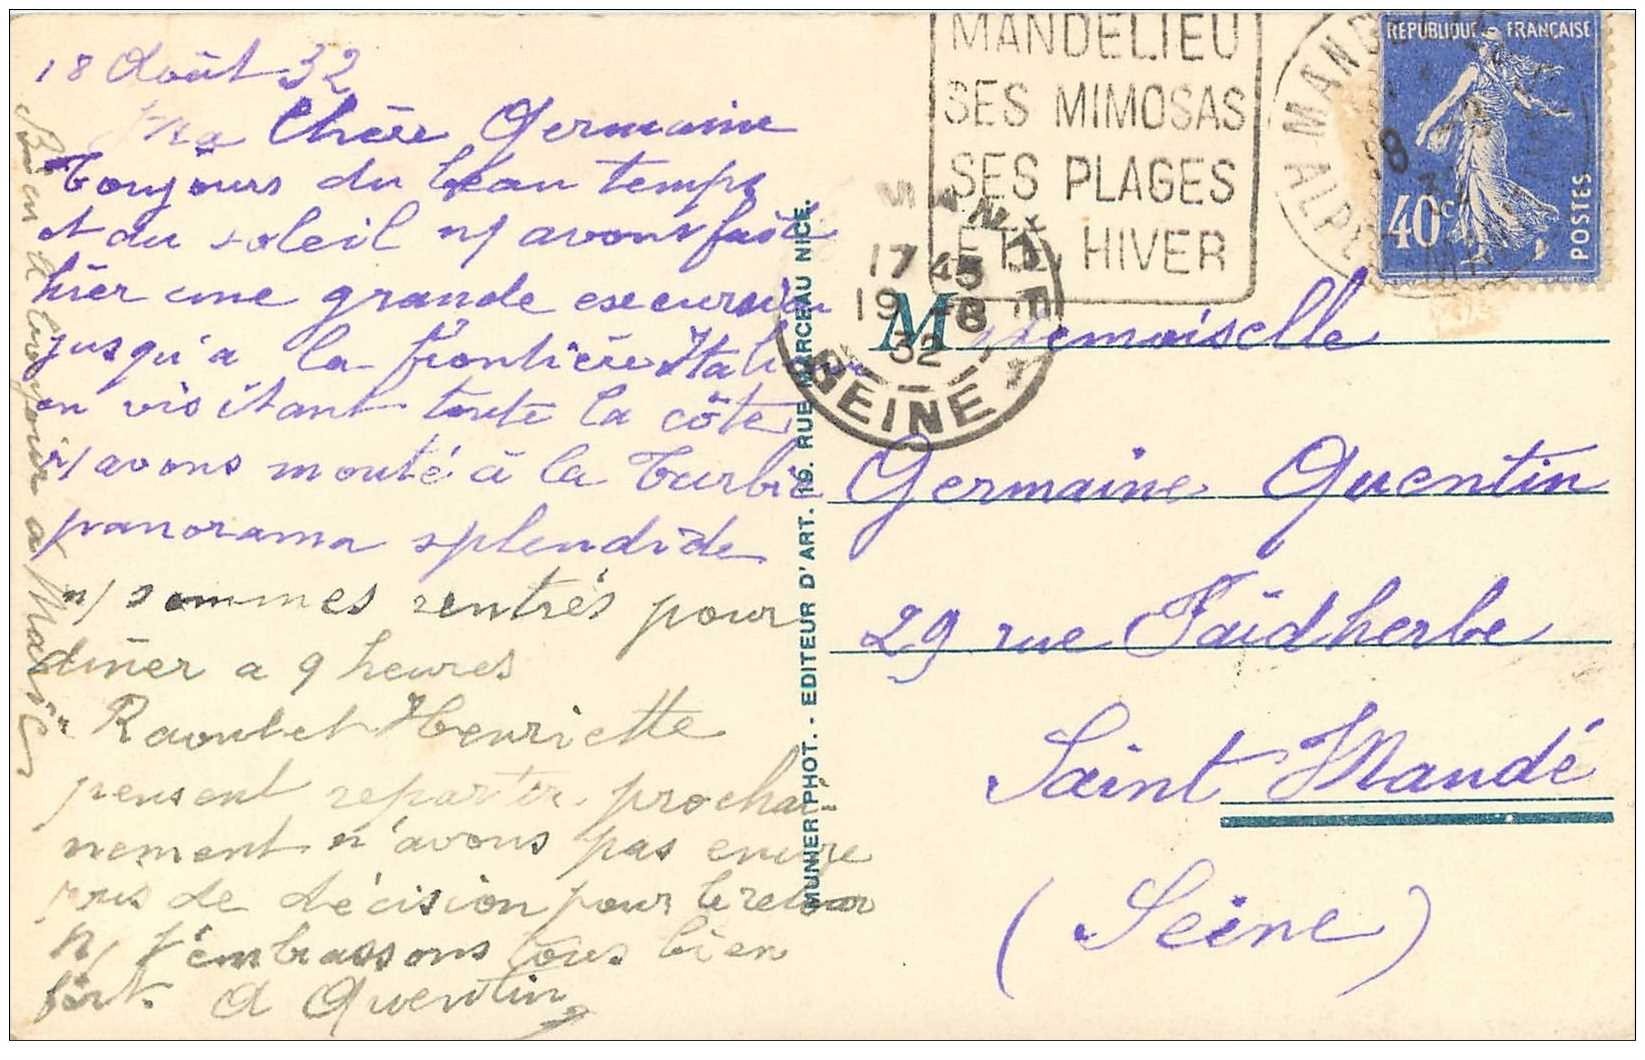 18 Août 32
Ma Chère Germaine
Toujours du beau temps
et du soleil n/ avons fait
hier une grande excursion
jusqu'a la frontière Italienne
en visitant toute la côte
n/ avons monté à la Turbie
panorama splendide
n/ sommes rentrés pour
diner a 9 heures
Raoul et Henriette
pensent repartir prochai-
nement n'avons pas encore
pris de décision pour le retour
N/ t'embrassons tous bien
fort. A Quentin
Bien a Marie
MUNIER PHOT. - EDITEUR D'ART. 19. RUE MARCEAU NICE.
MANDELIEU
SES MIMOSAS
SES PLAGES
ETÉ HIVER
REPUBLIQUE FRANÇAISE
40c
POSTES
17 45
19 -8
32
SEINE
Mademoiselle
Germaine Quentin
29 rue Faidherbe
Saint Mandé
(Seine)